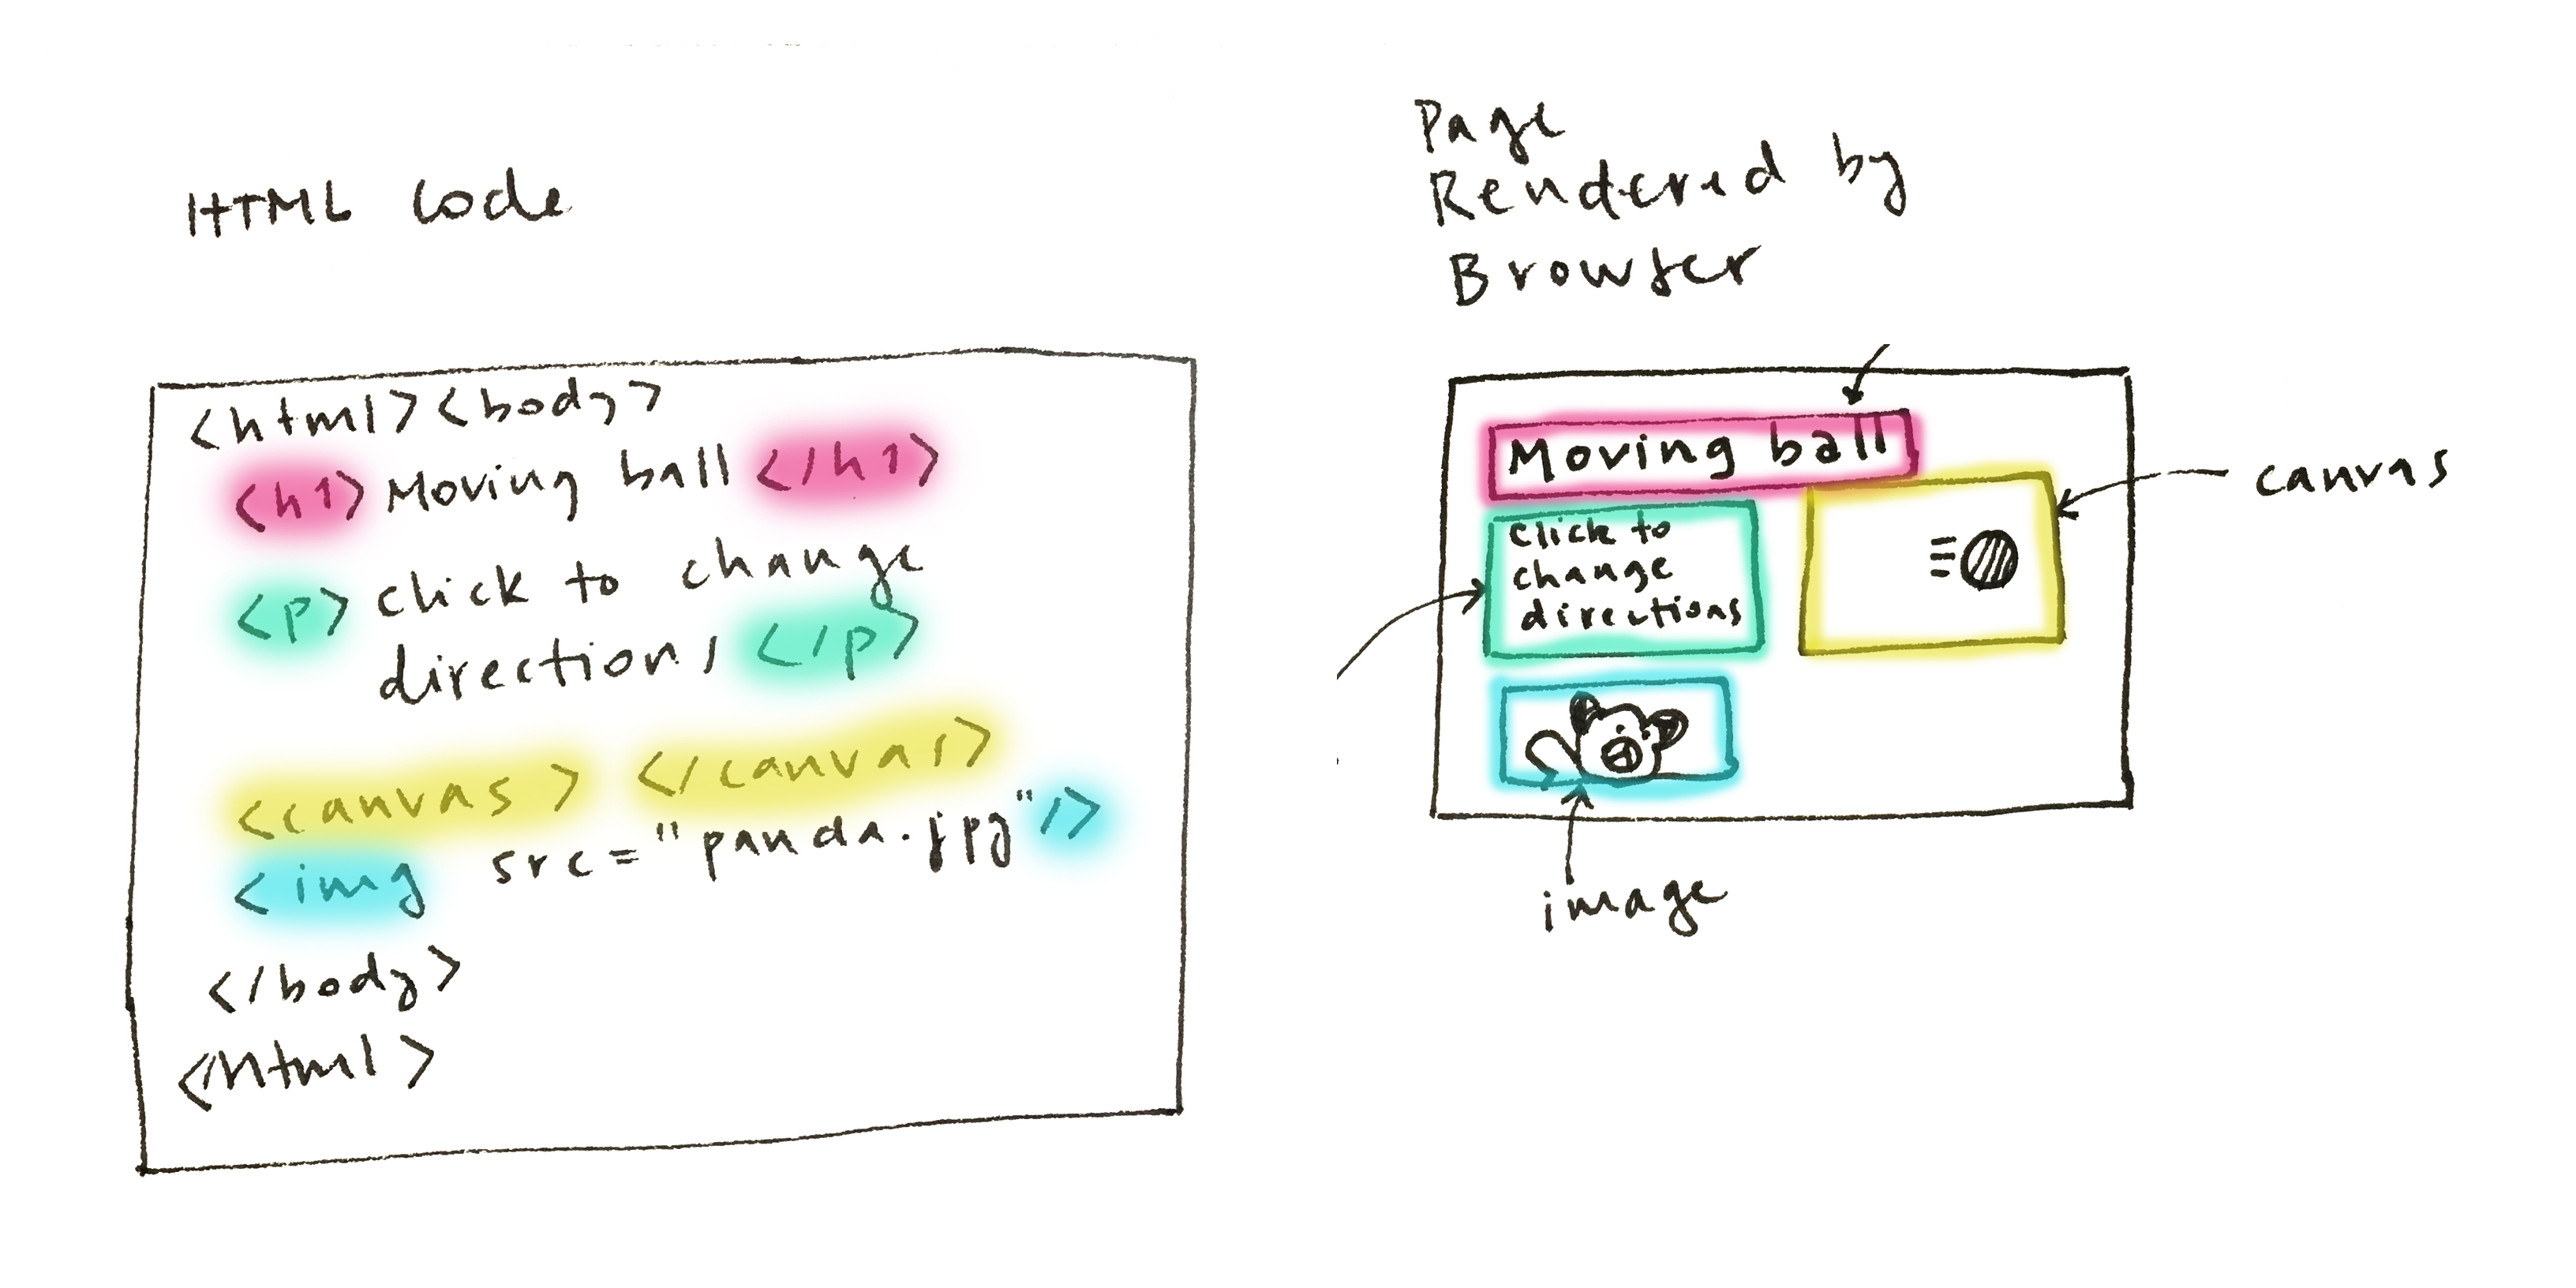 HTML code
<html><body>
<h1>Moving ball</h1>
<p>click to change
directions</p>
<canvas> </canvas>
<img src="panda.jpg"/>
</body>
</html>
Page
Rendered by
Browser
Moving ball
click to
change
directions
canvas
image